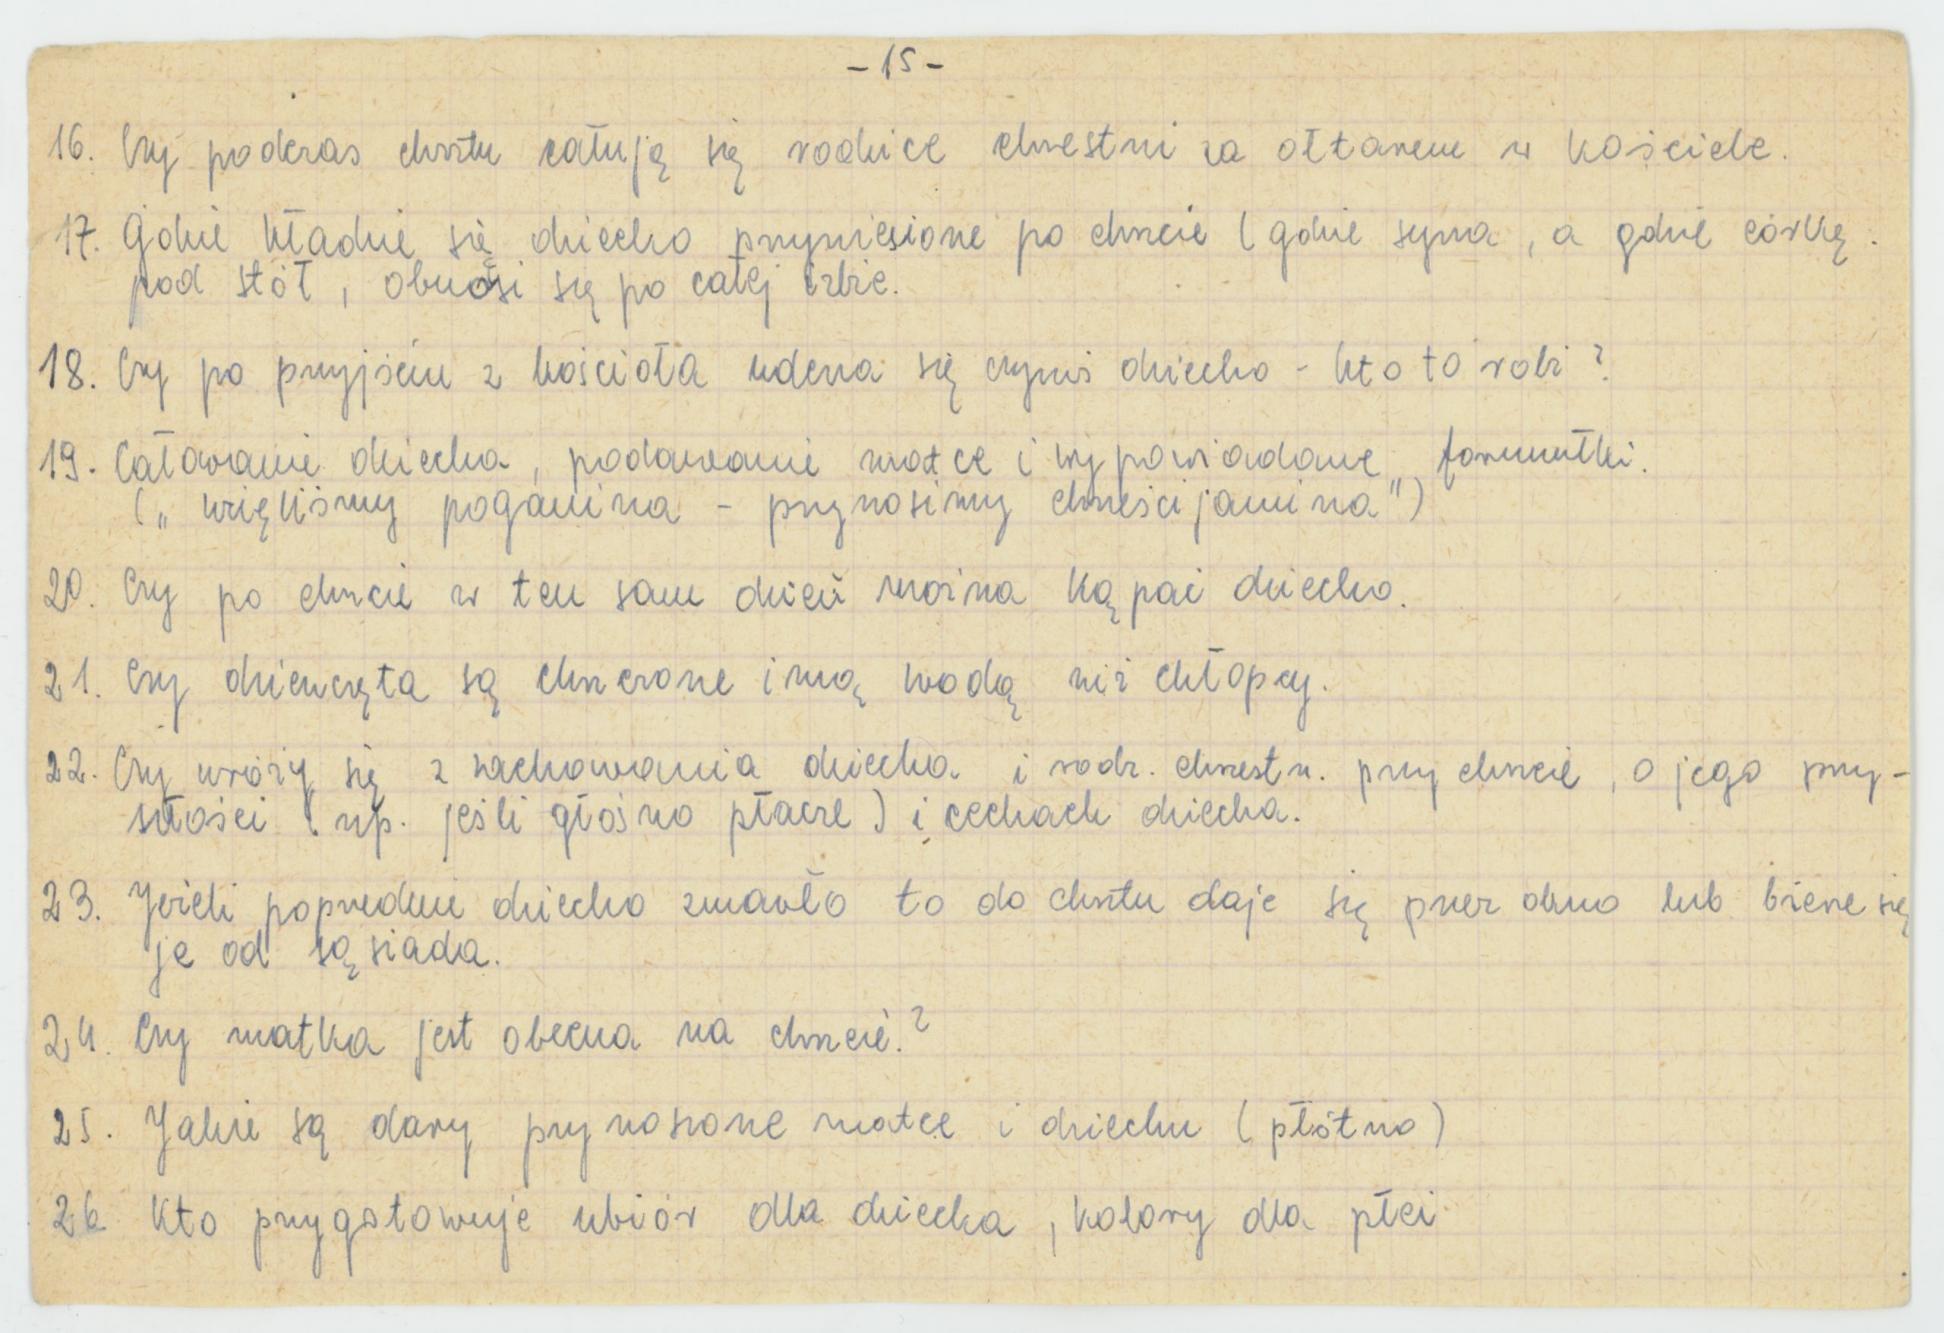 - 15 -
16. Czy podczas chrztu całują się rodzice chrzestni za ołtarzem w kościele.
17. Gdzie kładzie się dziecko przyniesione po chrzcie (gdzie syna, a gdzie córkę.
pod stół, obnosi się po całej izbie.
18. Czy po przyjściu z kościoła uderza się czymś dziecko - kto to robi?
19. Całowanie dziecka, podawanie matce i wypowiadane formułki.
(„wzięliśmy poganina - przynosimy chrześcijanina")
20. Czy po chrzcie w ten sam dzień można kąpać dziecko.
21. Czy dziewczęta są chrzczone inną wodą niż chłopcy.
22. Czy wróży się z zachowania dziecka i rodz. chrzestn. przy chrzcie, o jego przy-
szłości (np. jeśli głośno płacze) i cechach dziecka.
23. Jeżeli poprzednie dziecko zmarło to do chrztu daje się przez okno lub bierze się
je od sąsiada.
24. Czy matka jest obecna na chrzcie?
25. Jakie są dary przynoszone matce i dziecku (płótno)
26 Kto przygotowuje ubiór dla dziecka, kolory dla płci